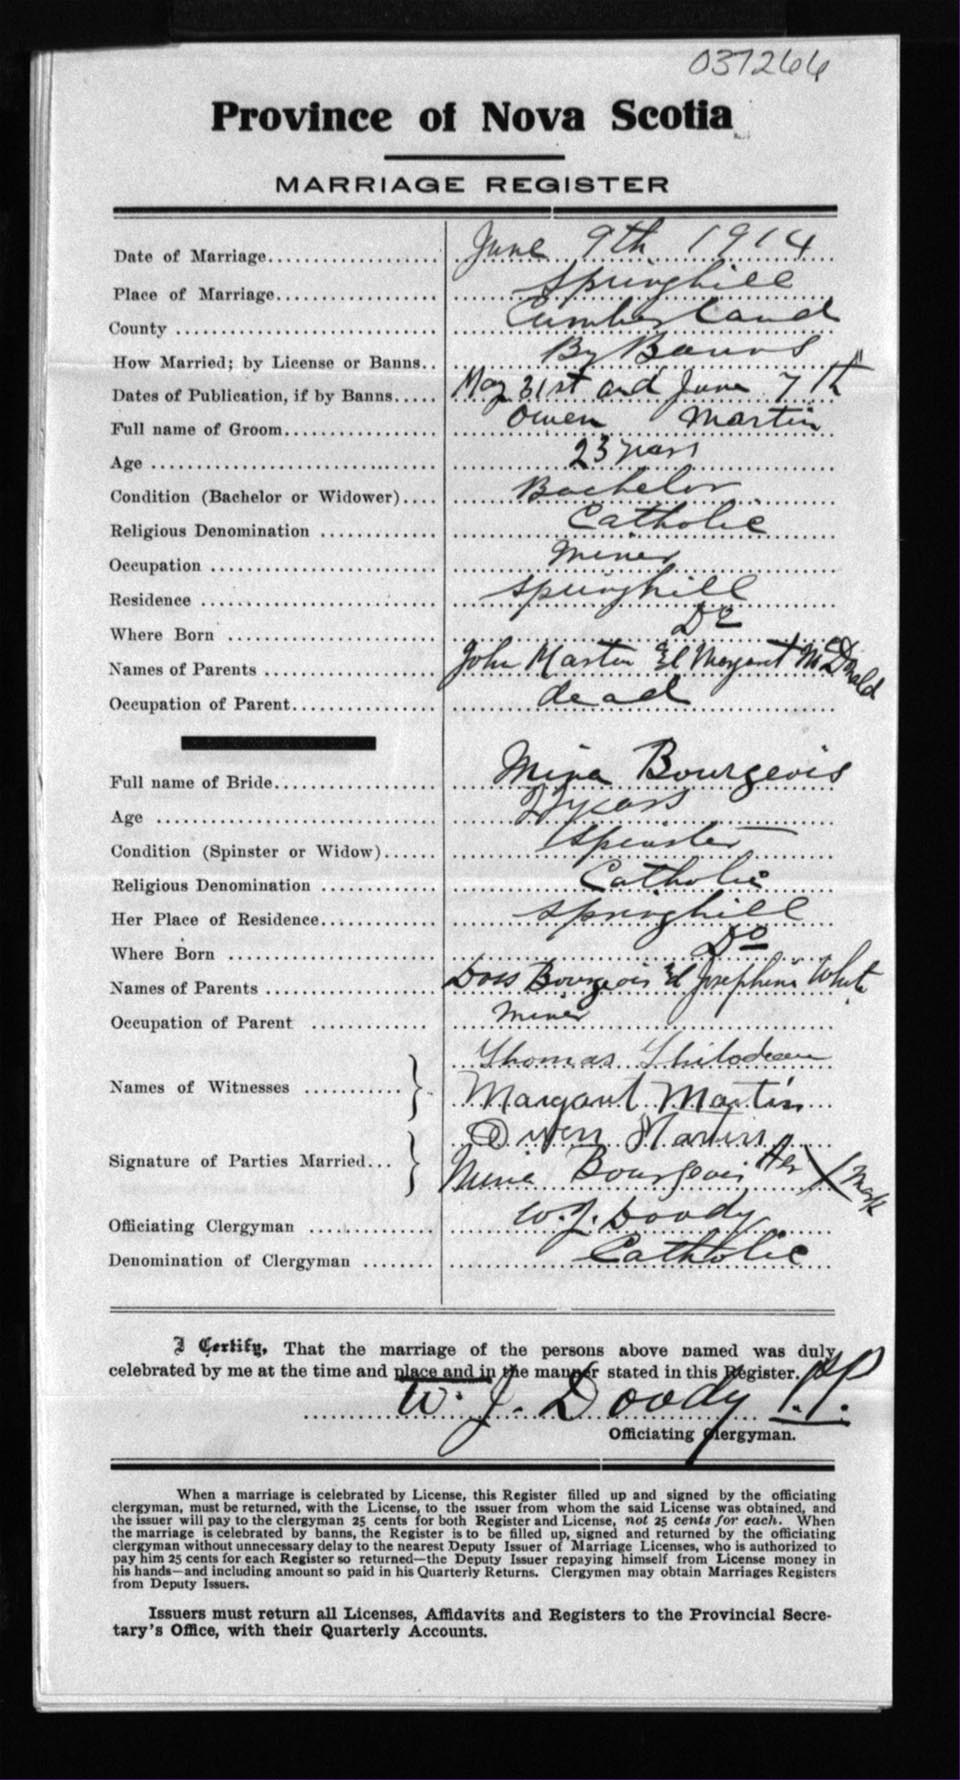 037266
Province of Nova Scotia
MARRIAGE REGISTER
Date of Marriage.................. June 9th 1914
Place of Marriage................. Springhill
County ........................... Cumberland
How Married; by License or Banns.. By Banns
Dates of Publication, if by Banns..... May 31st and June 7th
Full name of Groom................ Owen Martin
Age .............................. 23 years
Condition (Bachelor or Widower).... Bachelor
Religious Denomination ............ Catholic
Occupation ....................... Miner
Residence ........................ Springhill
Where Born ....................... Do
Names of Parents ................. John Martin et Margaret McDonald
Occupation of Parent.............. dead
Full name of Bride................ Mina Bourgeois
Age .............................. years
Condition (Spinster or Widow)...... Spinster
Religious Denomination ............ Catholic
Her Place of Residence............ Springhill
Where Born ....................... Do
Names of Parents ................. Bourgeois et Josephine White
Occupation of Parent ............. Miner
Thomas Thibodeau
Names of Witnesses ........... } Margaret Martin
Owen Martin
Signature of Parties Married... } Mina Bourgeois Her X Mark
Officiating Clergyman ............ W. J. Doody
Denomination of Clergyman ........ Catholic
I Certify, That the marriage of the persons above named was duly
celebrated by me at the time and place and in the manner stated in this Register.
W. J. Doody P.P.
Officiating Clergyman.
When a marriage is celebrated by License, this Register filled up and signed by the officiating
clergyman, must be returned, with the License, to the issuer from whom the said License was obtained, and
the issuer will pay to the clergyman 25 cents for both Register and License, not 25 cents for each. When
the marriage is celebrated by banns, the Register is to be filled up, signed and returned by the officiating
clergyman without unnecessary delay to the nearest Deputy Issuer of Marriage Licenses, who is authorized to
pay him 25 cents for each Register so returned—the Deputy Issuer repaying himself from License money in
his hands—and including amount so paid in his Quarterly Returns. Clergymen may obtain Marriages Registers
from Deputy Issuers.
Issuers must return all Licenses, Affidavits and Registers to the Provincial Secre-
tary's Office, with their Quarterly Accounts.